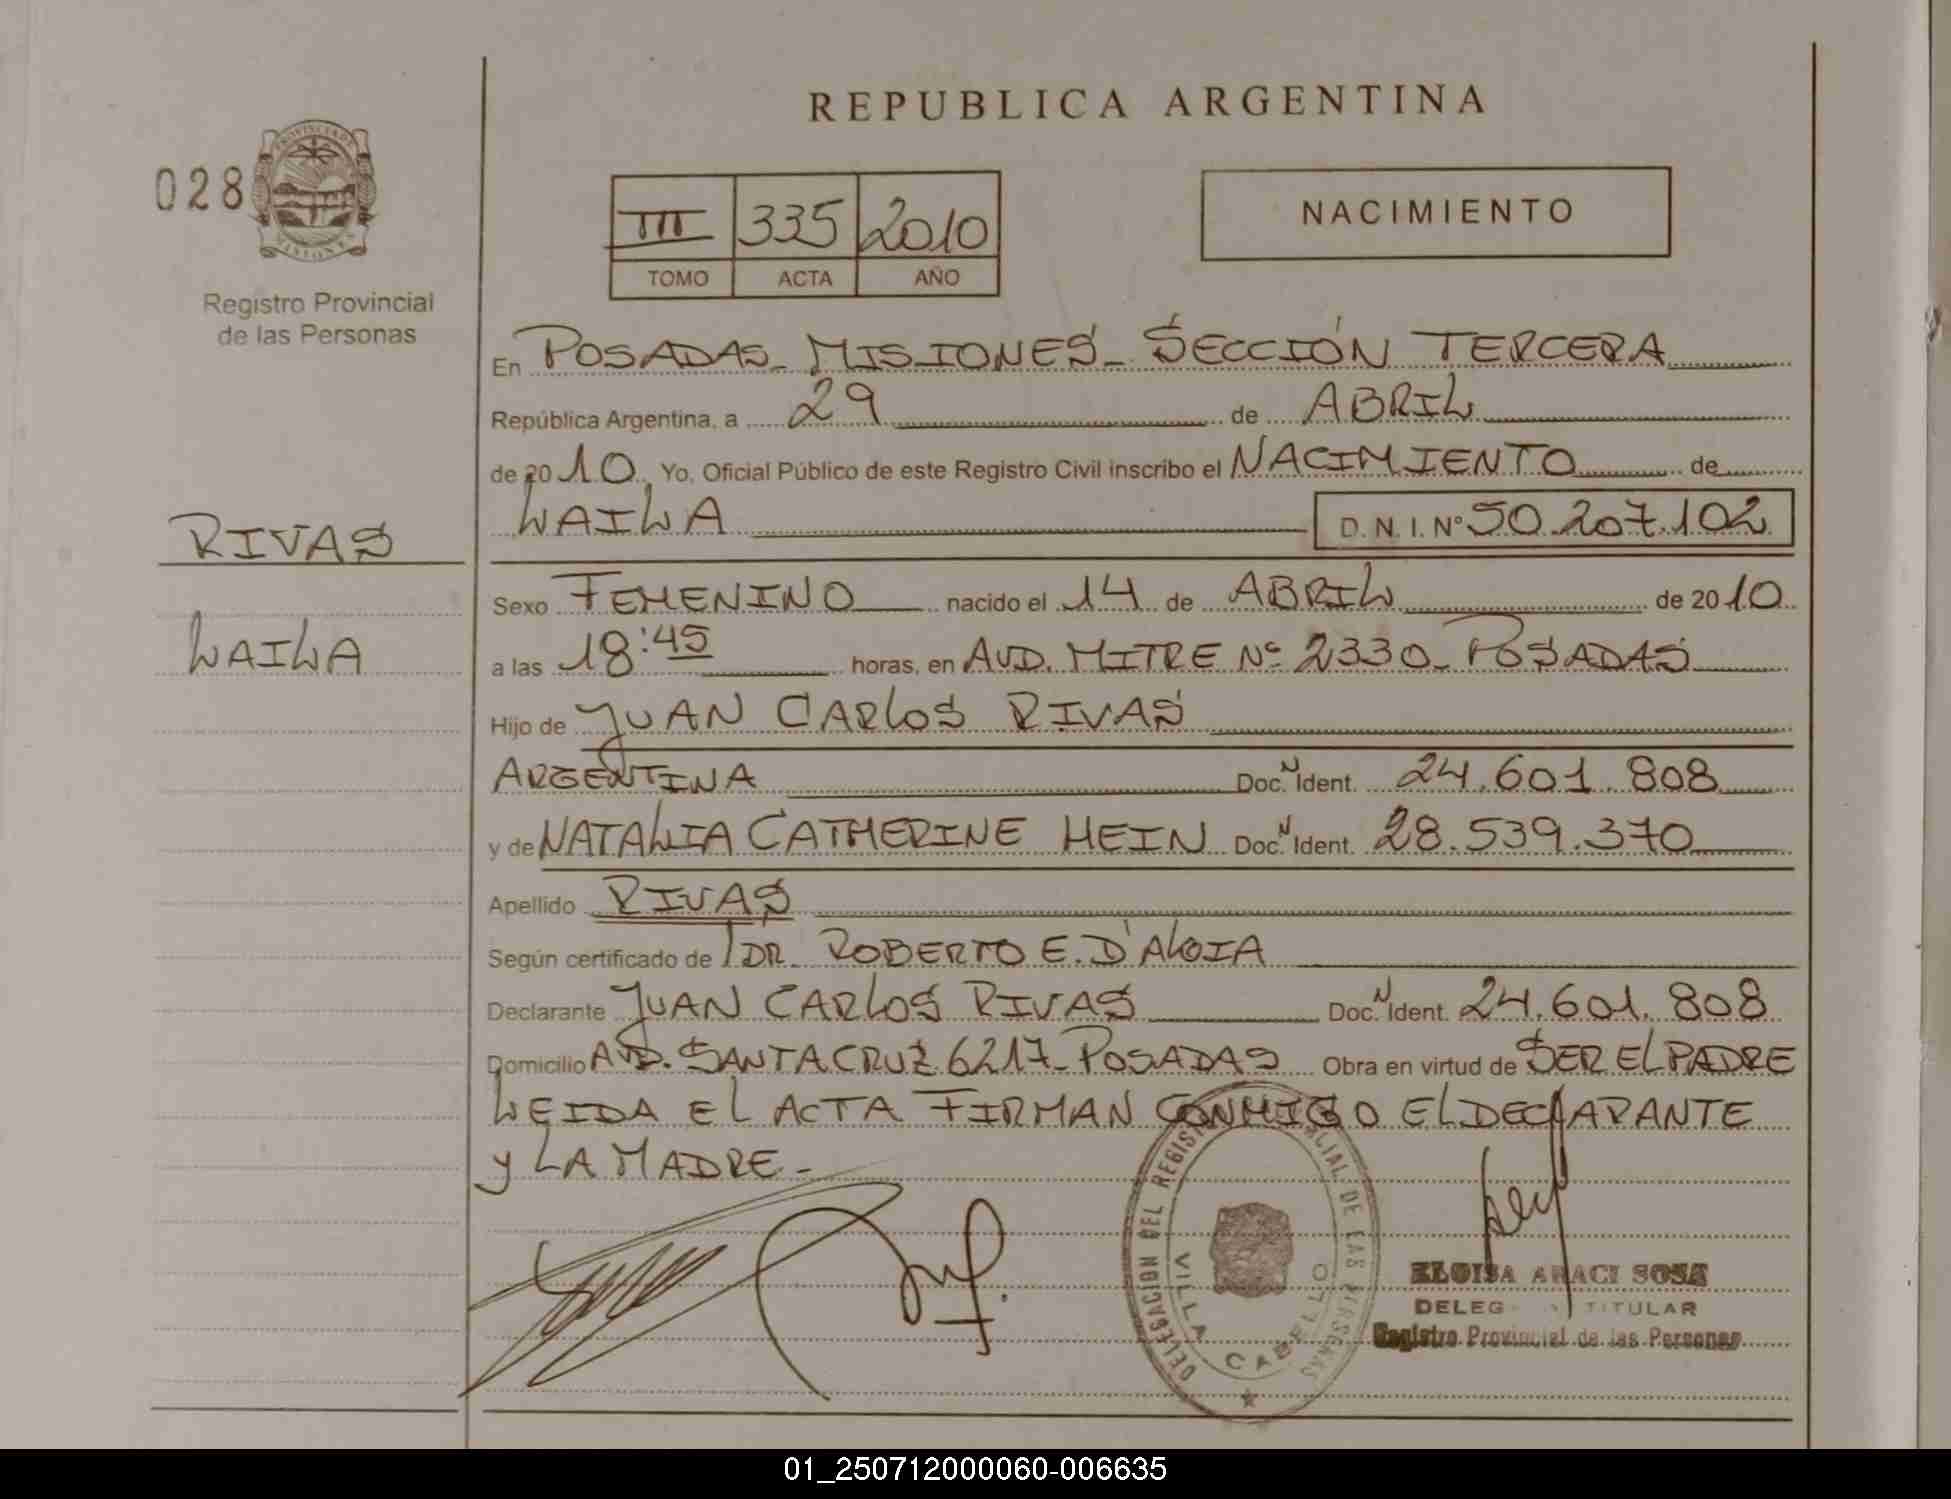 REPUBLICA ARGENTINA
028
PROVINCIA DE
MISIONES
Registro Provincial
de las Personas
III 335 2010
TOMO ACTA AÑO
NACIMIENTO
En POSADAS - MISIONES - SECCIÓN TERCERA
República Argentina, a 29 de ABRIL
de 2010. Yo, Oficial Público de este Registro Civil inscribo el NACIMIENTO de
LAILA D.N.I. Nº 50.207.102
RIVAS
LAILA
Sexo FEMENINO nacido el 14 de ABRIL de 2010
a las 18:45 horas, en AVD. MITRE Nº 2330 - POSADAS
Hijo de JUAN CARLOS RIVAS
ARGENTINA Doc. N Ident. 24.601.808
y de NATALIA CATHERINE HEIN Doc. N Ident. 28.539.370
Apellido RIVAS
Según certificado de DR. ROBERTO E. D'ALOIA
Declarante JUAN CARLOS RIVAS Doc. N Ident. 24.601.808
Domicilio AVD. SANTA CRUZ 6217 - POSADAS Obra en virtud de SER EL PADRE
LEIDA EL ACTA FIRMAN CONMIGO EL DECLARANTE
y LA MADRE.-
DELEGACIÓN DEL REGISTRO PROVINCIAL DE LAS PERSONAS
VILLA CABELLO
ELOISA ARACI SOSA
DELEG TITULAR
Registro Provincial de las Personas
01_250712000060-006635